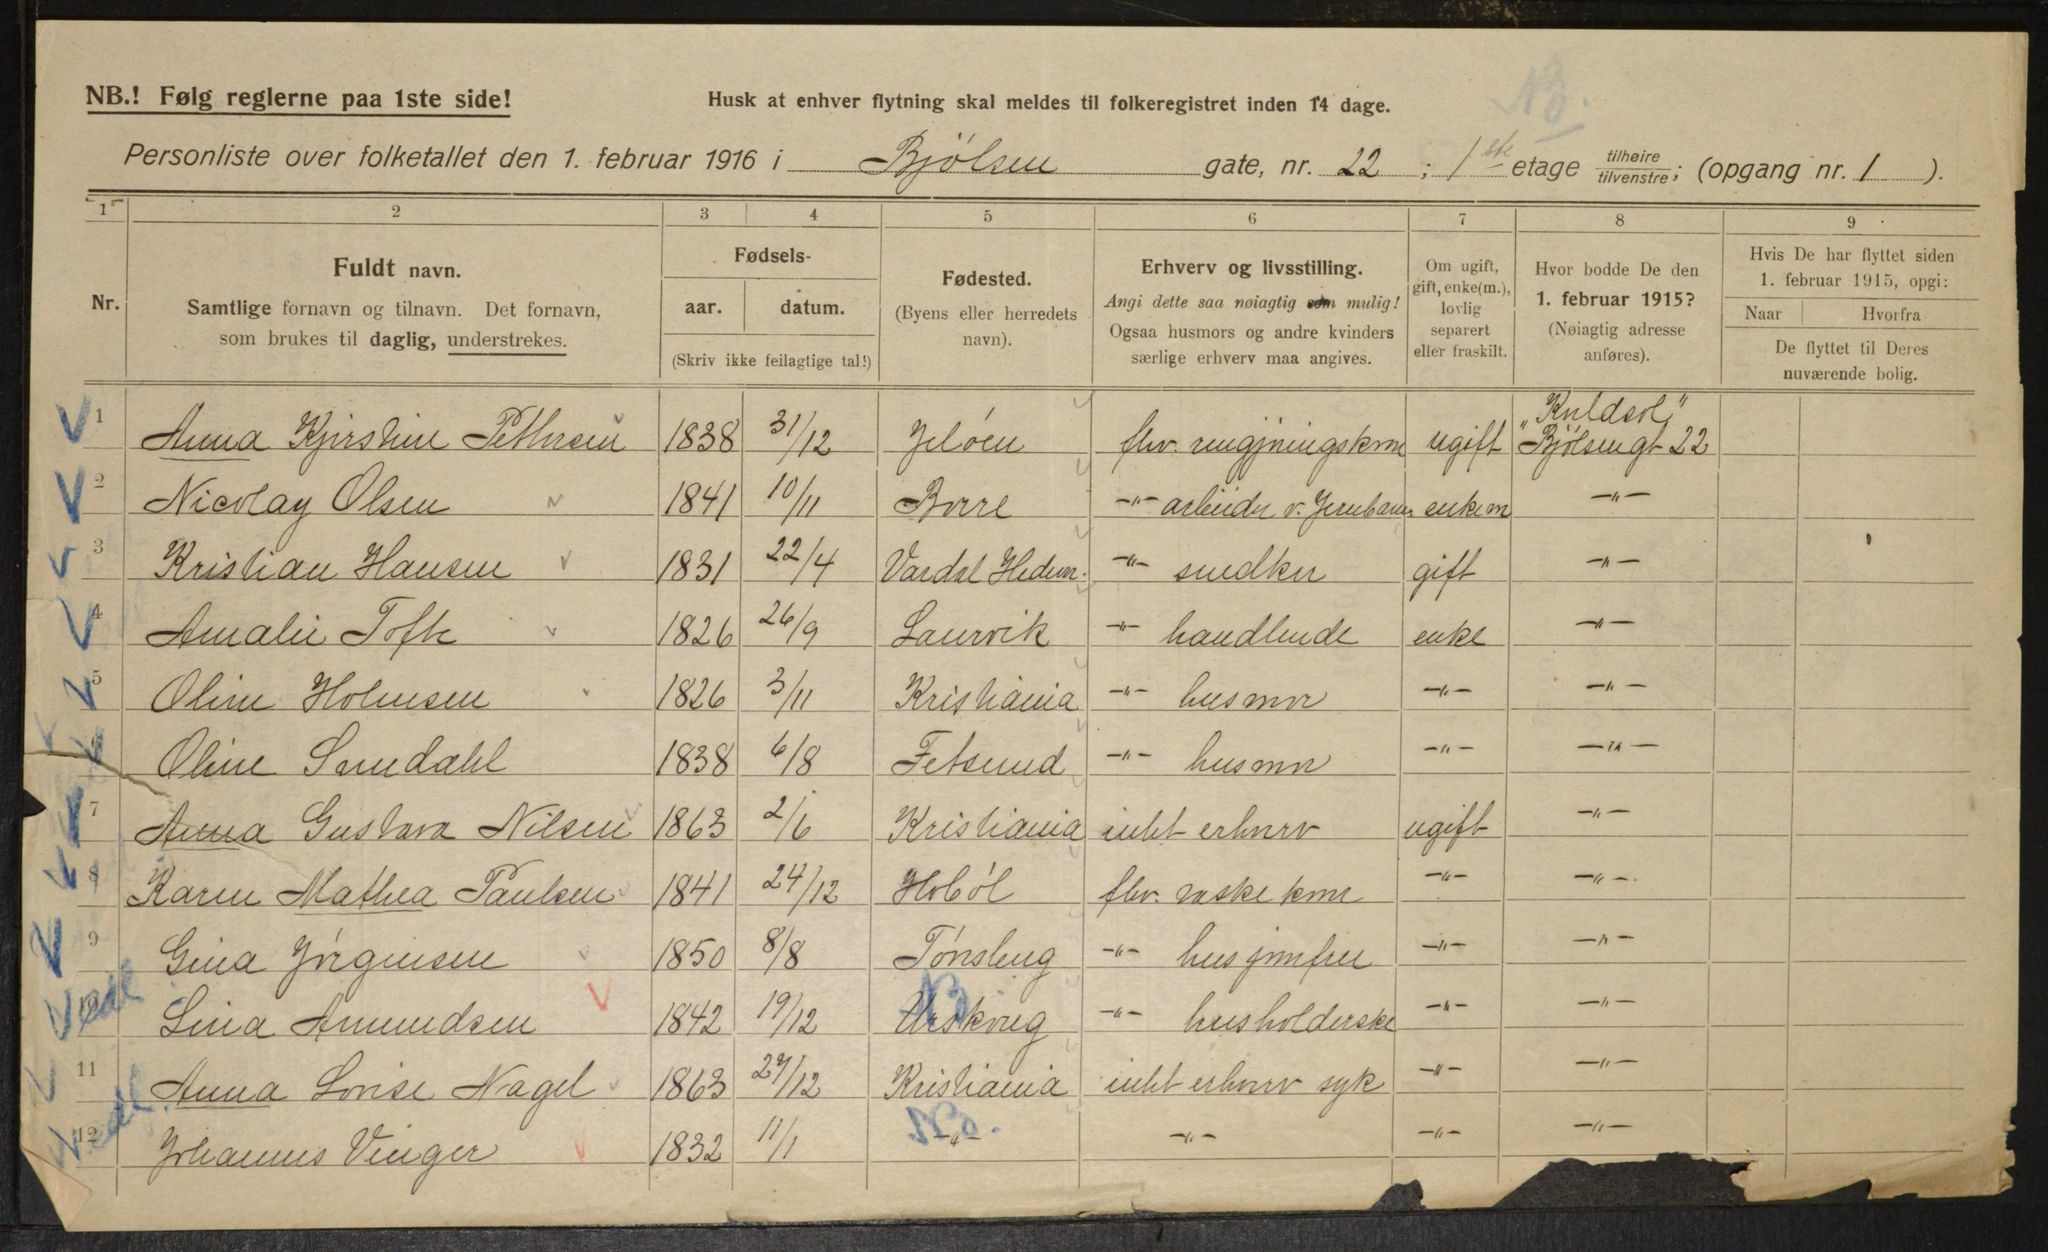 NB.
NB.! Følg reglerne paa 1ste side! Husk at enhver flytning skal meldes til folkeregistret inden 14 dage.
Personliste over folketallet den 1. februar 1916 i Bjølsen gate, nr. 22 ; 1ste etage tilhøire tilvenstre; (opgang nr. 1 ).
1 2 3 4 5 6 7 8 9
Nr. Fuldt navn. Samtlige fornavn og tilnavn. Det fornavn, som brukes til daglig, understrekes.
Fødsels-
aar. datum.
(Skriv ikke feilagtige tal!)
Fødested.
(Byens eller herredets navn).
Erhverv og livsstilling.
Angi dette saa nøiagtig som mulig!
Ogsaa husmors og andre kvinders
særlige erhverv maa angives.
Om ugift,
gift, enke(m.),
lovlig
separert
eller fraskilt.
Hvor bodde De den
1. februar 1915?
(Nøiagtig adresse
anføres).
Hvis De har flyttet siden
1. februar 1915, opgi:
Naar Hvorfra
De flyttet til Deres
nuværende bolig.
1 Anna Kjirstine Pettersen 1838 31/12 Jeløen fhv. rengjøringskone ugift "Kuldsol" Bjølsengt 22
2 Nicolay Olsen 1841 10/11 Borre -"- arbeider v. Jernbanen enkem -"-
3 Kristian Hansen 1831 22/4 Vardal Hedem. -"- snedker gift -"-
4 Amalie Toft 1826 26/9 Laurvik -"- handlende enke -"-
5 Oline Holmsen 1826 3/11 Kristiania -"- husmor -"- -"-
6 Oline Sundahl 1838 6/8 Fetsund -"- husmor -"- -"-
7 Anna Gustava Nilsen 1863 2/6 Kristiania intet erhverv ugift -"-
8 Karen Mathea Paulsen 1841 24/12 Hobøl fhv. vaskekone -"- -"-
9 Gina Jørgensen 1850 8/8 Tønsberg -"- husjomfru -"- -"-
10 Lina Amundsen 1842 19/12 Urskoug -"- husholderske -"- -"-
11 Anna Lovise Nagel 1863 27/12 Kristiania intet erhverv syk -"- -"-
12 Johannes Vinger 1832 11/1 -"- -"- -"- -"-